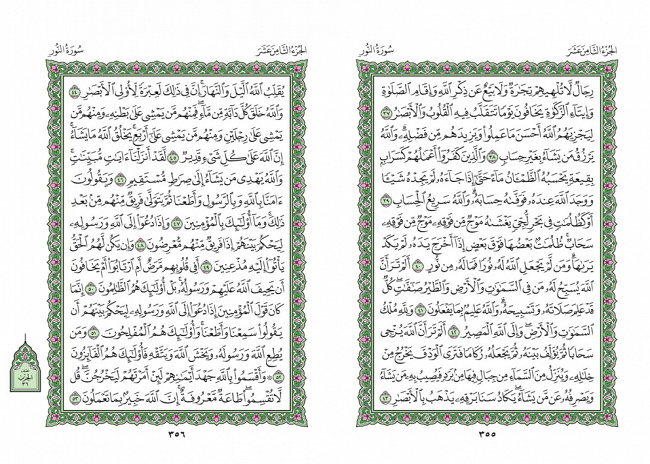 الجزء الثامن عشر سورة النور
رِجَالٌ لَّا تُلْهِيهِمْ تِجَٰرَةٌ وَلَا بَيْعٌ عَن ذِكْرِ ٱللَّهِ وَإِقَامِ ٱلصَّلَوٰةِ
وَإِيتَآءِ ٱلزَّكَوٰةِ يَخَافُونَ يَوْمًا تَتَقَلَّبُ فِيهِ ٱلْقُلُوبُ وَٱلْأَبْصَٰرُ ٣٧
لِيَجْزِيَهُمُ ٱللَّهُ أَحْسَنَ مَا عَمِلُوا۟ وَيَزِيدَهُم مِّن فَضْلِهِۦ وَٱللَّهُ
يَرْزُقُ مَن يَشَآءُ بِغَيْرِ حِسَابٍ ٣٨ وَٱلَّذِينَ كَفَرُوٓا۟ أَعْمَٰلُهُمْ كَسَرَابٍۭ
بِقِيعَةٍ يَحْسَبُهُ ٱلظَّمْـَٔانُ مَآءً حَتَّىٰٓ إِذَا جَآءَهُۥ لَمْ يَجِدْهُ شَيْـًٔا
وَوَجَدَ ٱللَّهَ عِندَهُۥ فَوَفَّىٰهُ حِسَابَهُۥ وَٱللَّهُ سَرِيعُ ٱلْحِسَابِ ٣٩
أَوْ كَظُلُمَٰتٍ فِى بَحْرٍ لُّجِّىٍّ يَغْشَىٰهُ مَوْجٌ مِّن فَوْقِهِۦ مَوْجٌ مِّن فَوْقِهِۦ
سَحَابٌ ظُلُمَٰتٌۢ بَعْضُهَا فَوْقَ بَعْضٍ إِذَآ أَخْرَجَ يَدَهُۥ لَمْ يَكَدْ
يَرَىٰهَا وَمَن لَّمْ يَجْعَلِ ٱللَّهُ لَهُۥ نُورًا فَمَا لَهُۥ مِن نُّورٍ ٤٠ أَلَمْ تَرَ أَنَّ
ٱللَّهَ يُسَبِّحُ لَهُۥ مَن فِى ٱلسَّمَٰوَٰتِ وَٱلْأَرْضِ وَٱلطَّيْرُ صَٰٓفَّٰتٍ كُلٌّ
قَدْ عَلِمَ صَلَاتَهُۥ وَتَسْبِيحَهُۥ وَٱللَّهُ عَلِيمٌۢ بِمَا يَفْعَلُونَ ٤١ وَلِلَّهِ مُلْكُ
ٱلسَّمَٰوَٰتِ وَٱلْأَرْضِ وَإِلَى ٱللَّهِ ٱلْمَصِيرُ ٤٢ أَلَمْ تَرَ أَنَّ ٱللَّهَ يُزْجِى
سَحَابًا ثُمَّ يُؤَلِّفُ بَيْنَهُۥ ثُمَّ يَجْعَلُهُۥ رُكَامًا فَتَرَى ٱلْوَدْقَ يَخْرُجُ مِنْ
خِلَٰلِهِۦ وَيُنَزِّلُ مِنَ ٱلسَّمَآءِ مِن جِبَالٍ فِيهَا مِنۢ بَرَدٍ فَيُصِيبُ بِهِۦ مَن يَشَآءُ
وَيَصْرِفُهُۥ عَن مَّن يَشَآءُ يَكَادُ سَنَا بَرْقِهِۦ يَذْهَبُ بِٱلْأَبْصَٰرِ ٤٣
٣٥٥
الجزء الثامن عشر سورة النور
يُقَلِّبُ ٱللَّهُ ٱلَّيْلَ وَٱلنَّهَارَ إِنَّ فِى ذَٰلِكَ لَعِبْرَةً لِّأُو۟لِى ٱلْأَبْصَٰرِ ٤٤
وَٱللَّهُ خَلَقَ كُلَّ دَآبَّةٍ مِّن مَّآءٍ فَمِنْهُم مَّن يَمْشِى عَلَىٰ بَطْنِهِۦ وَمِنْهُم مَّن
يَمْشِى عَلَىٰ رِجْلَيْنِ وَمِنْهُم مَّن يَمْشِى عَلَىٰٓ أَرْبَعٍ يَخْلُقُ ٱللَّهُ مَا يَشَآءُ
إِنَّ ٱللَّهَ عَلَىٰ كُلِّ شَىْءٍ قَدِيرٌ ٤٥ لَّقَدْ أَنزَلْنَآ ءَايَٰتٍ مُّبَيِّنَٰتٍ
وَٱللَّهُ يَهْدِى مَن يَشَآءُ إِلَىٰ صِرَٰطٍ مُّسْتَقِيمٍ ٤٦ وَيَقُولُونَ
ءَامَنَّا بِٱللَّهِ وَبِٱلرَّسُولِ وَأَطَعْنَا ثُمَّ يَتَوَلَّىٰ فَرِيقٌ مِّنْهُم مِّنۢ بَعْدِ
ذَٰلِكَ وَمَآ أُو۟لَٰٓئِكَ بِٱلْمُؤْمِنِينَ ٤٧ وَإِذَا دُعُوٓا۟ إِلَى ٱللَّهِ وَرَسُولِهِۦ
لِيَحْكُمَ بَيْنَهُمْ إِذَا فَرِيقٌ مِّنْهُم مُّعْرِضُونَ ٤٨ وَإِن يَكُن لَّهُمُ ٱلْحَقُّ
يَأْتُوٓا۟ إِلَيْهِ مُذْعِنِينَ ٤٩ أَفِى قُلُوبِهِم مَّرَضٌ أَمِ ٱرْتَابُوٓا۟ أَمْ يَخَافُونَ
أَن يَحِيفَ ٱللَّهُ عَلَيْهِمْ وَرَسُولُهُۥ بَلْ أُو۟لَٰٓئِكَ هُمُ ٱلظَّٰلِمُونَ ٥٠ إِنَّمَا
كَانَ قَوْلَ ٱلْمُؤْمِنِينَ إِذَا دُعُوٓا۟ إِلَى ٱللَّهِ وَرَسُولِهِۦ لِيَحْكُمَ بَيْنَهُمْ أَن
يَقُولُوا۟ سَمِعْنَا وَأَطَعْنَا وَأُو۟لَٰٓئِكَ هُمُ ٱلْمُفْلِحُونَ ٥١ وَمَن
يُطِعِ ٱللَّهَ وَرَسُولَهُۥ وَيَخْشَ ٱللَّهَ وَيَتَّقْهِ فَأُو۟لَٰٓئِكَ هُمُ ٱلْفَآئِزُونَ
٥٢ ۞ وَأَقْسَمُوا۟ بِٱللَّهِ جَهْدَ أَيْمَٰنِهِمْ لَئِنْ أَمَرْتَهُمْ لَيَخْرُجُنَّ قُل
لَّا تُقْسِمُوا۟ طَاعَةٌ مَّعْرُوفَةٌ إِنَّ ٱللَّهَ خَبِيرٌۢ بِمَا تَعْمَلُونَ ٥٣
الحزب
٣٦
٣٥٦